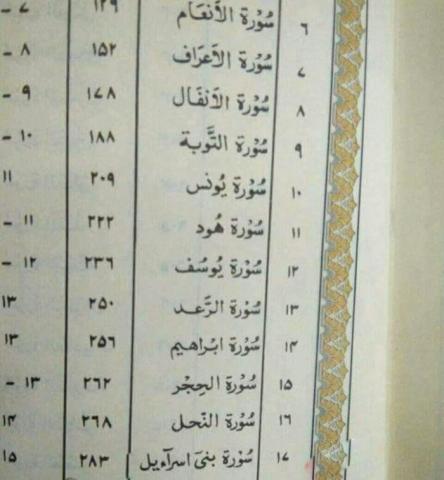 ٦ سُوْرَة الأَنعَام ١٢٩ ٧ -
٧ سُوْرَة الأَعرَاف ١٥٢ ٨ -
٨ سُوْرَة الأَنفَال ١٧٨ ٩ -
٩ سُوْرَة التَّوبَة ١٨٨ ١٠ -
١٠ سُوْرَة يُونس ٢٠٩ ١١
١١ سُوْرَة هُود ٢٢٢ ١١ -
١٢ سُوْرَة يُوسُف ٢٣٦ ١٢ -
١٣ سُوْرَة الرَّعد ٢٥٠ ١٣
١٤ سُوْرَة ابرَاهيم ٢٥٦ ١٣
١٥ سُوْرَة الحِجْر ٢٦٢ ١٣ -
١٦ سُوْرَة النَحل ٢٦٨ ١٤
١٧ سُوْرَة بنىٓ اسرآءيل ٢٨٣ ١٥